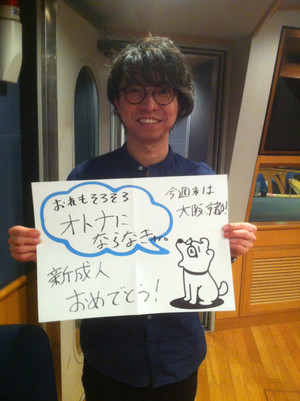 おれもそろそろ
オトナに
ならなきゃ。
新成人
おめでとう!
今週末は
大阪、京都!